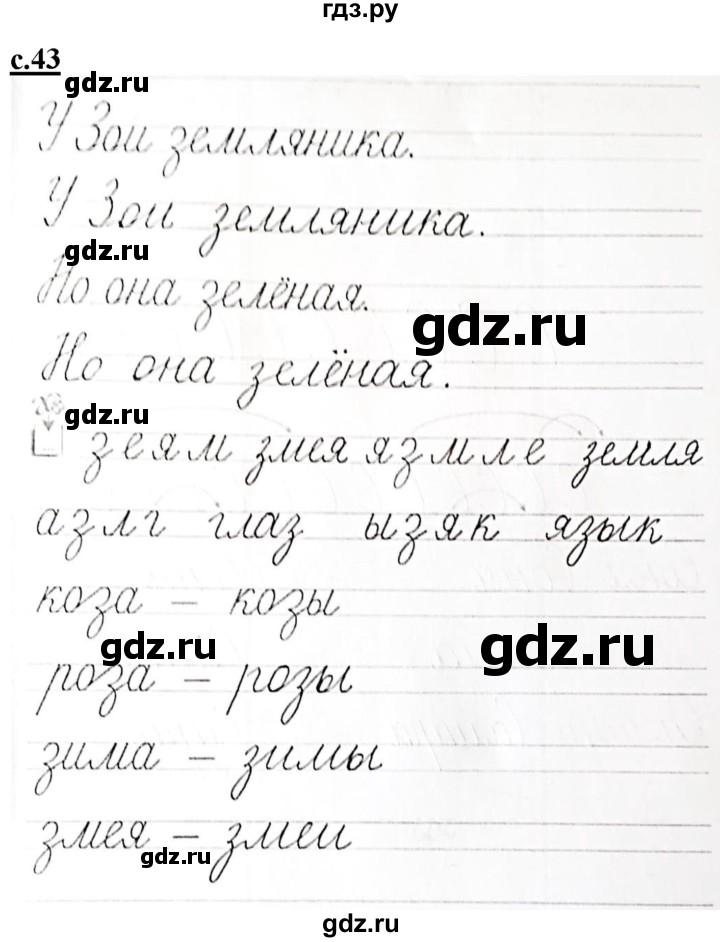 гдз.ру
с.43
gdz.ru
У Зои земляника.
У Зои земляника.
gdz.ru
Но она зелёная.
gdz.ru
Но она зелёная.
gdz.ru
зеям змея язмле земля
азлг глаз ызяк язык
коза – козы
gdz.ru
gdz.ru
роза – розы
зима – зимы
змея – змеи
gdz.ru
gdz.ru